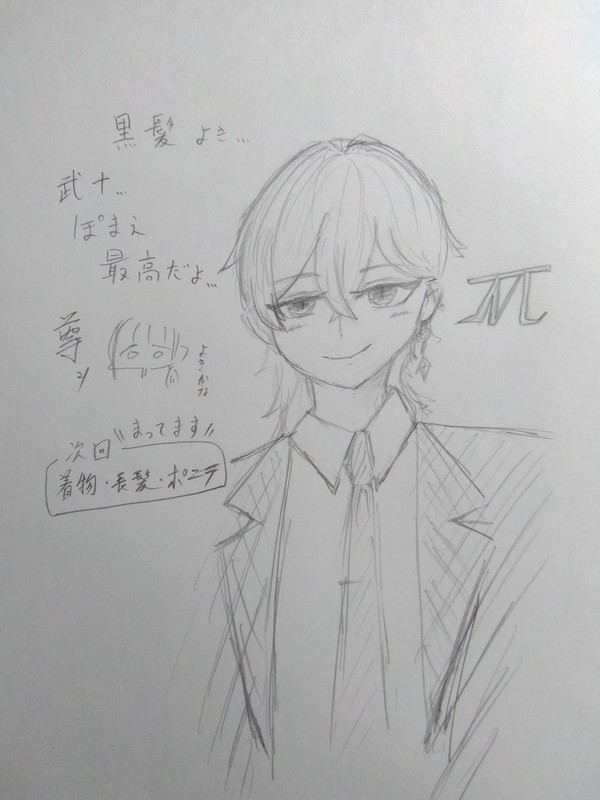 黒髪 よき…
武十…
ぽまえ
最高だよ…
尊ッ
よきかな
次回 "まってます"
着物・長髪・ポニテ
π